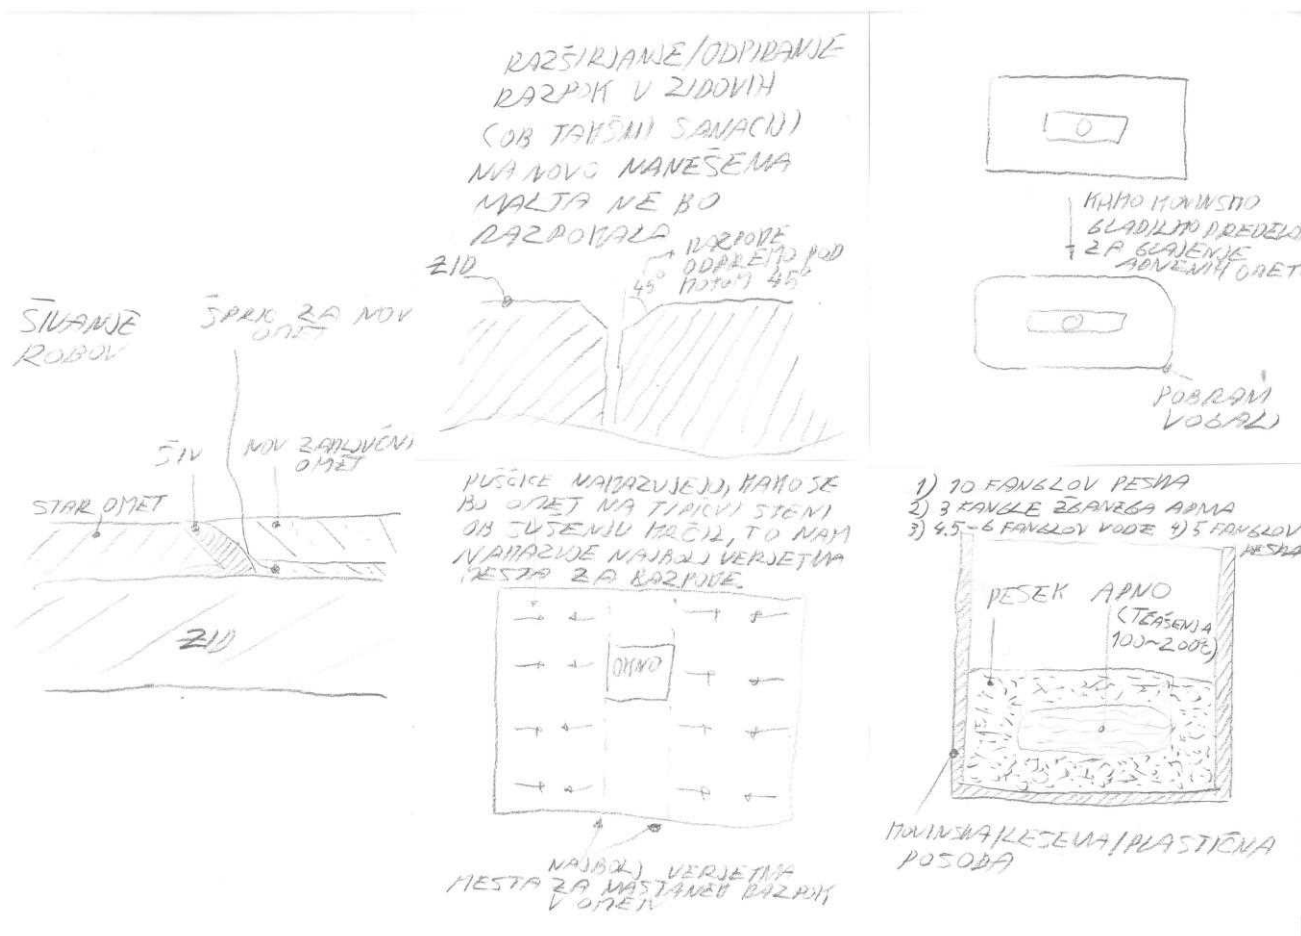 ŠIVANJE
ROBOV
ŠPRIC ZA NOV
OMET
ŠIV
NOV ZAKLJUČNI
OMET
STAR OMET
ZID
RAZŠIRJANJE/ODPIRANJE
RAZPOK V ZIDOVIH
(OB TAKŠNI SANACIJI
NA NOVO NANEŠENA
MALTA NE BO
RAZPOKALA
RAZPOKE
ODPREMO POD
KOTOM 45°
45°
ZID
PUŠČICE NAKAZUJEJO, KAKO SE
BO OMET NA TIPIČNI STENI
OB SUŠENJU KRČIL, TO NAM
NAKAZUJE NAJBOLJ VERJETNA
MESTA ZA RAZPOKE.
OKNO
NAJBOLJ VERJETNA
MESTA ZA NASTANEK RAZPOK
V OMETU
KAKO KOVINSKO
GLADILKO PREDELAMO
ZA GLAJENJE
APNENIH OMETOV
POBRANI
VOGALI
1) 10 FANGLOV PESKA
2) 3 FANGLE ŽGANEGA APNA
3) 4.5-6 FANGLOV VODE 4) 5 FANGLOV
PESKA
PESEK APNO
100~200°C)
KOVINSKA/LESENA/PLASTIČNA
POSODA